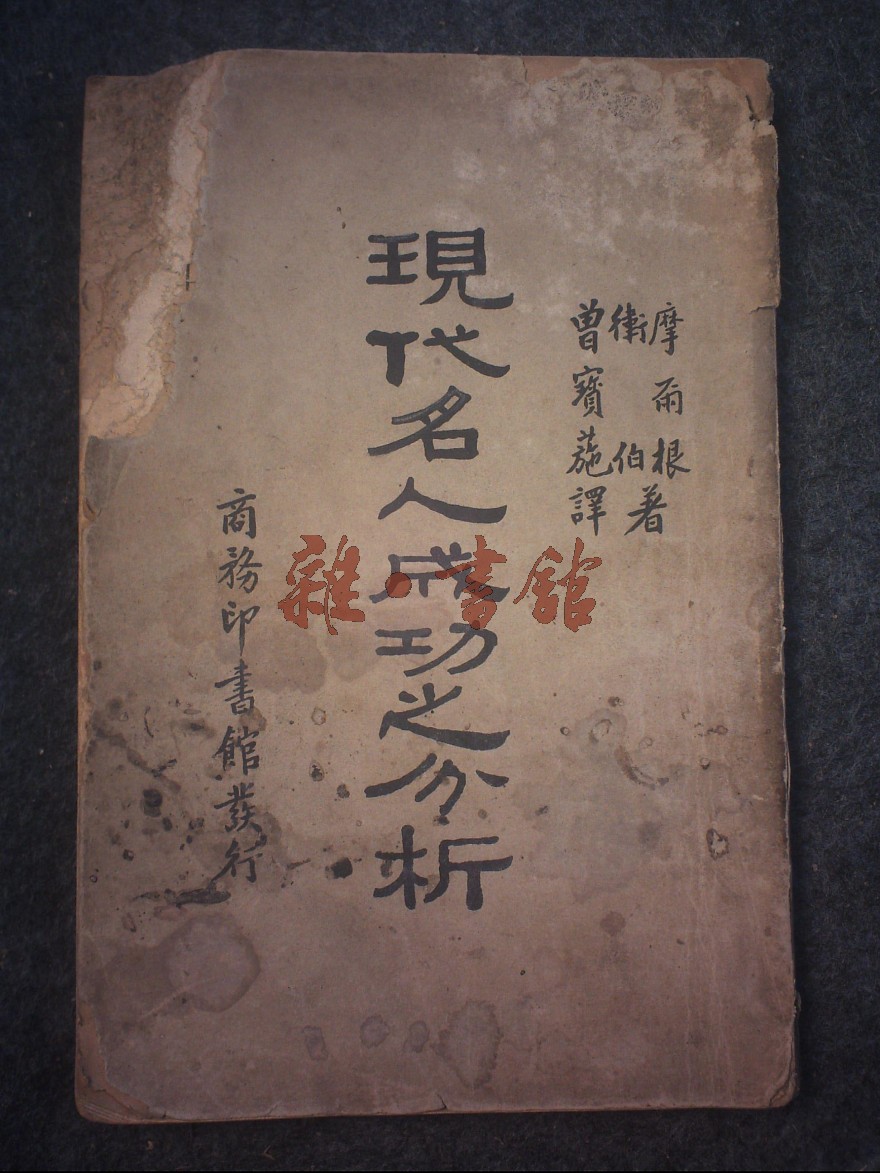 摩爾根
衛伯著
曾寶葹譯
現代名人成功之分析
商務印書館發行
雜·書館